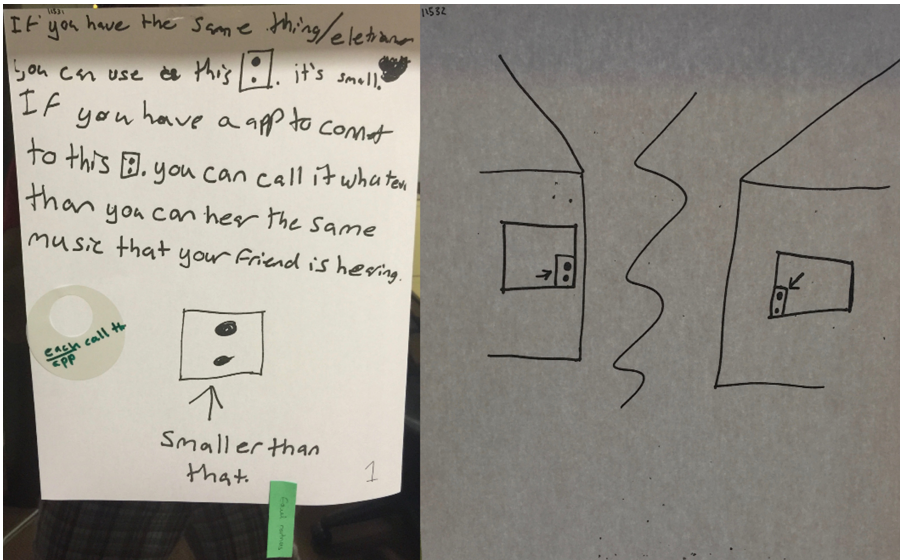 11531
If you have the same thing/eletrian
you can use this . it's small.
If you have a app to connt
to this . you can call it whatev
than you can hear the same
music that your friend is hearing.
each call th
app
smaller than
that.
1
11532